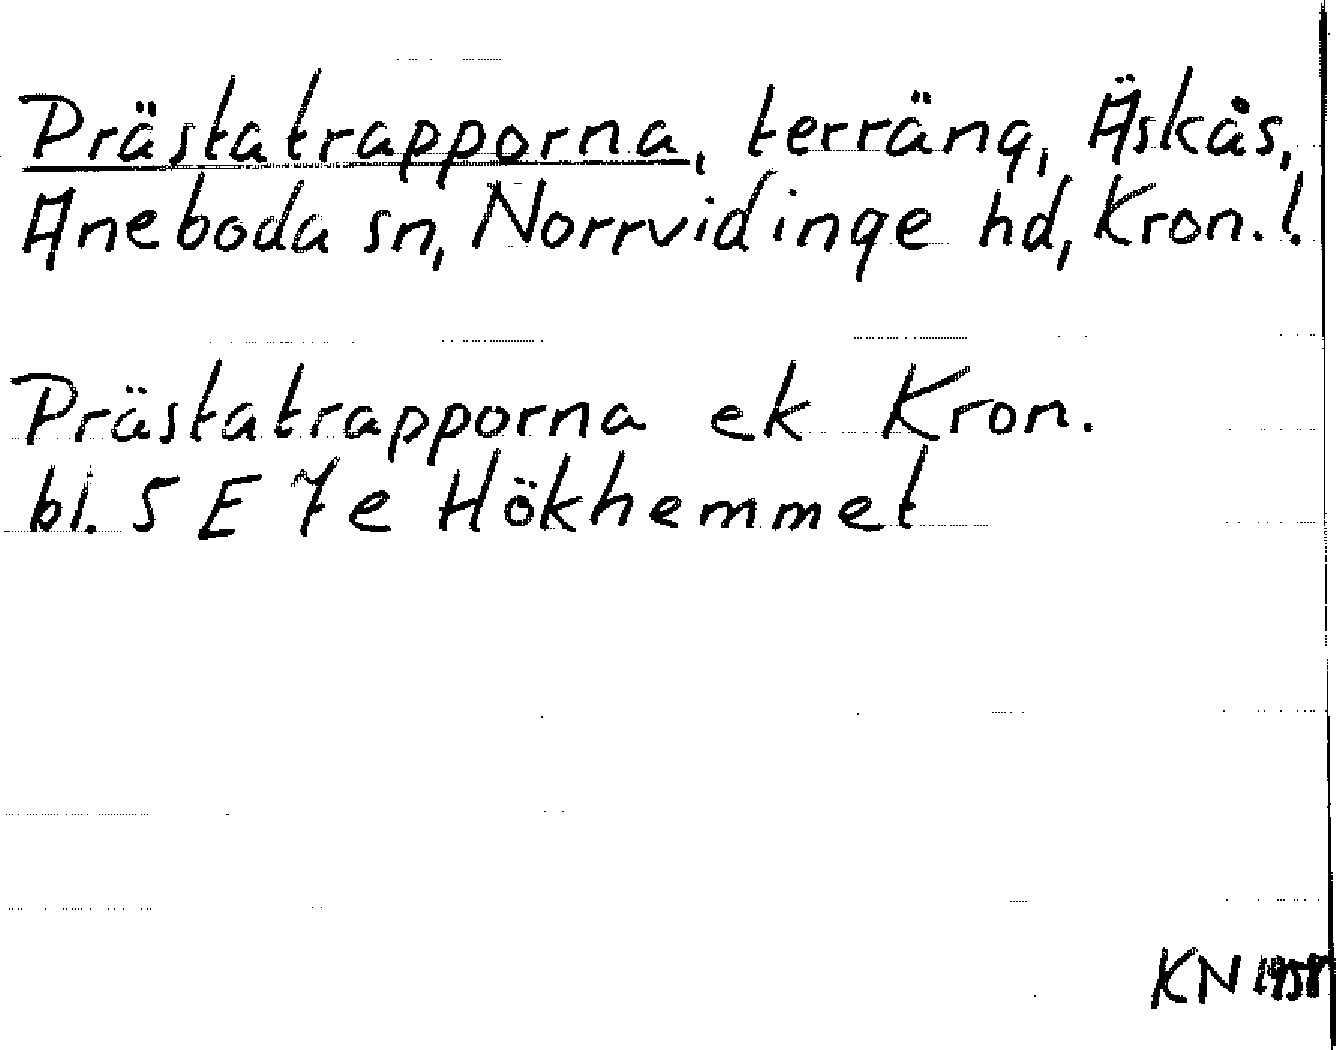 Prästatrapporna, terräng, Äskås,
Aneboda sn, Norrvidinge hd, Kron. l.
Prästatrapporna ek Kron.
bl. 5 E 7e Hökhemmet
KN 1958